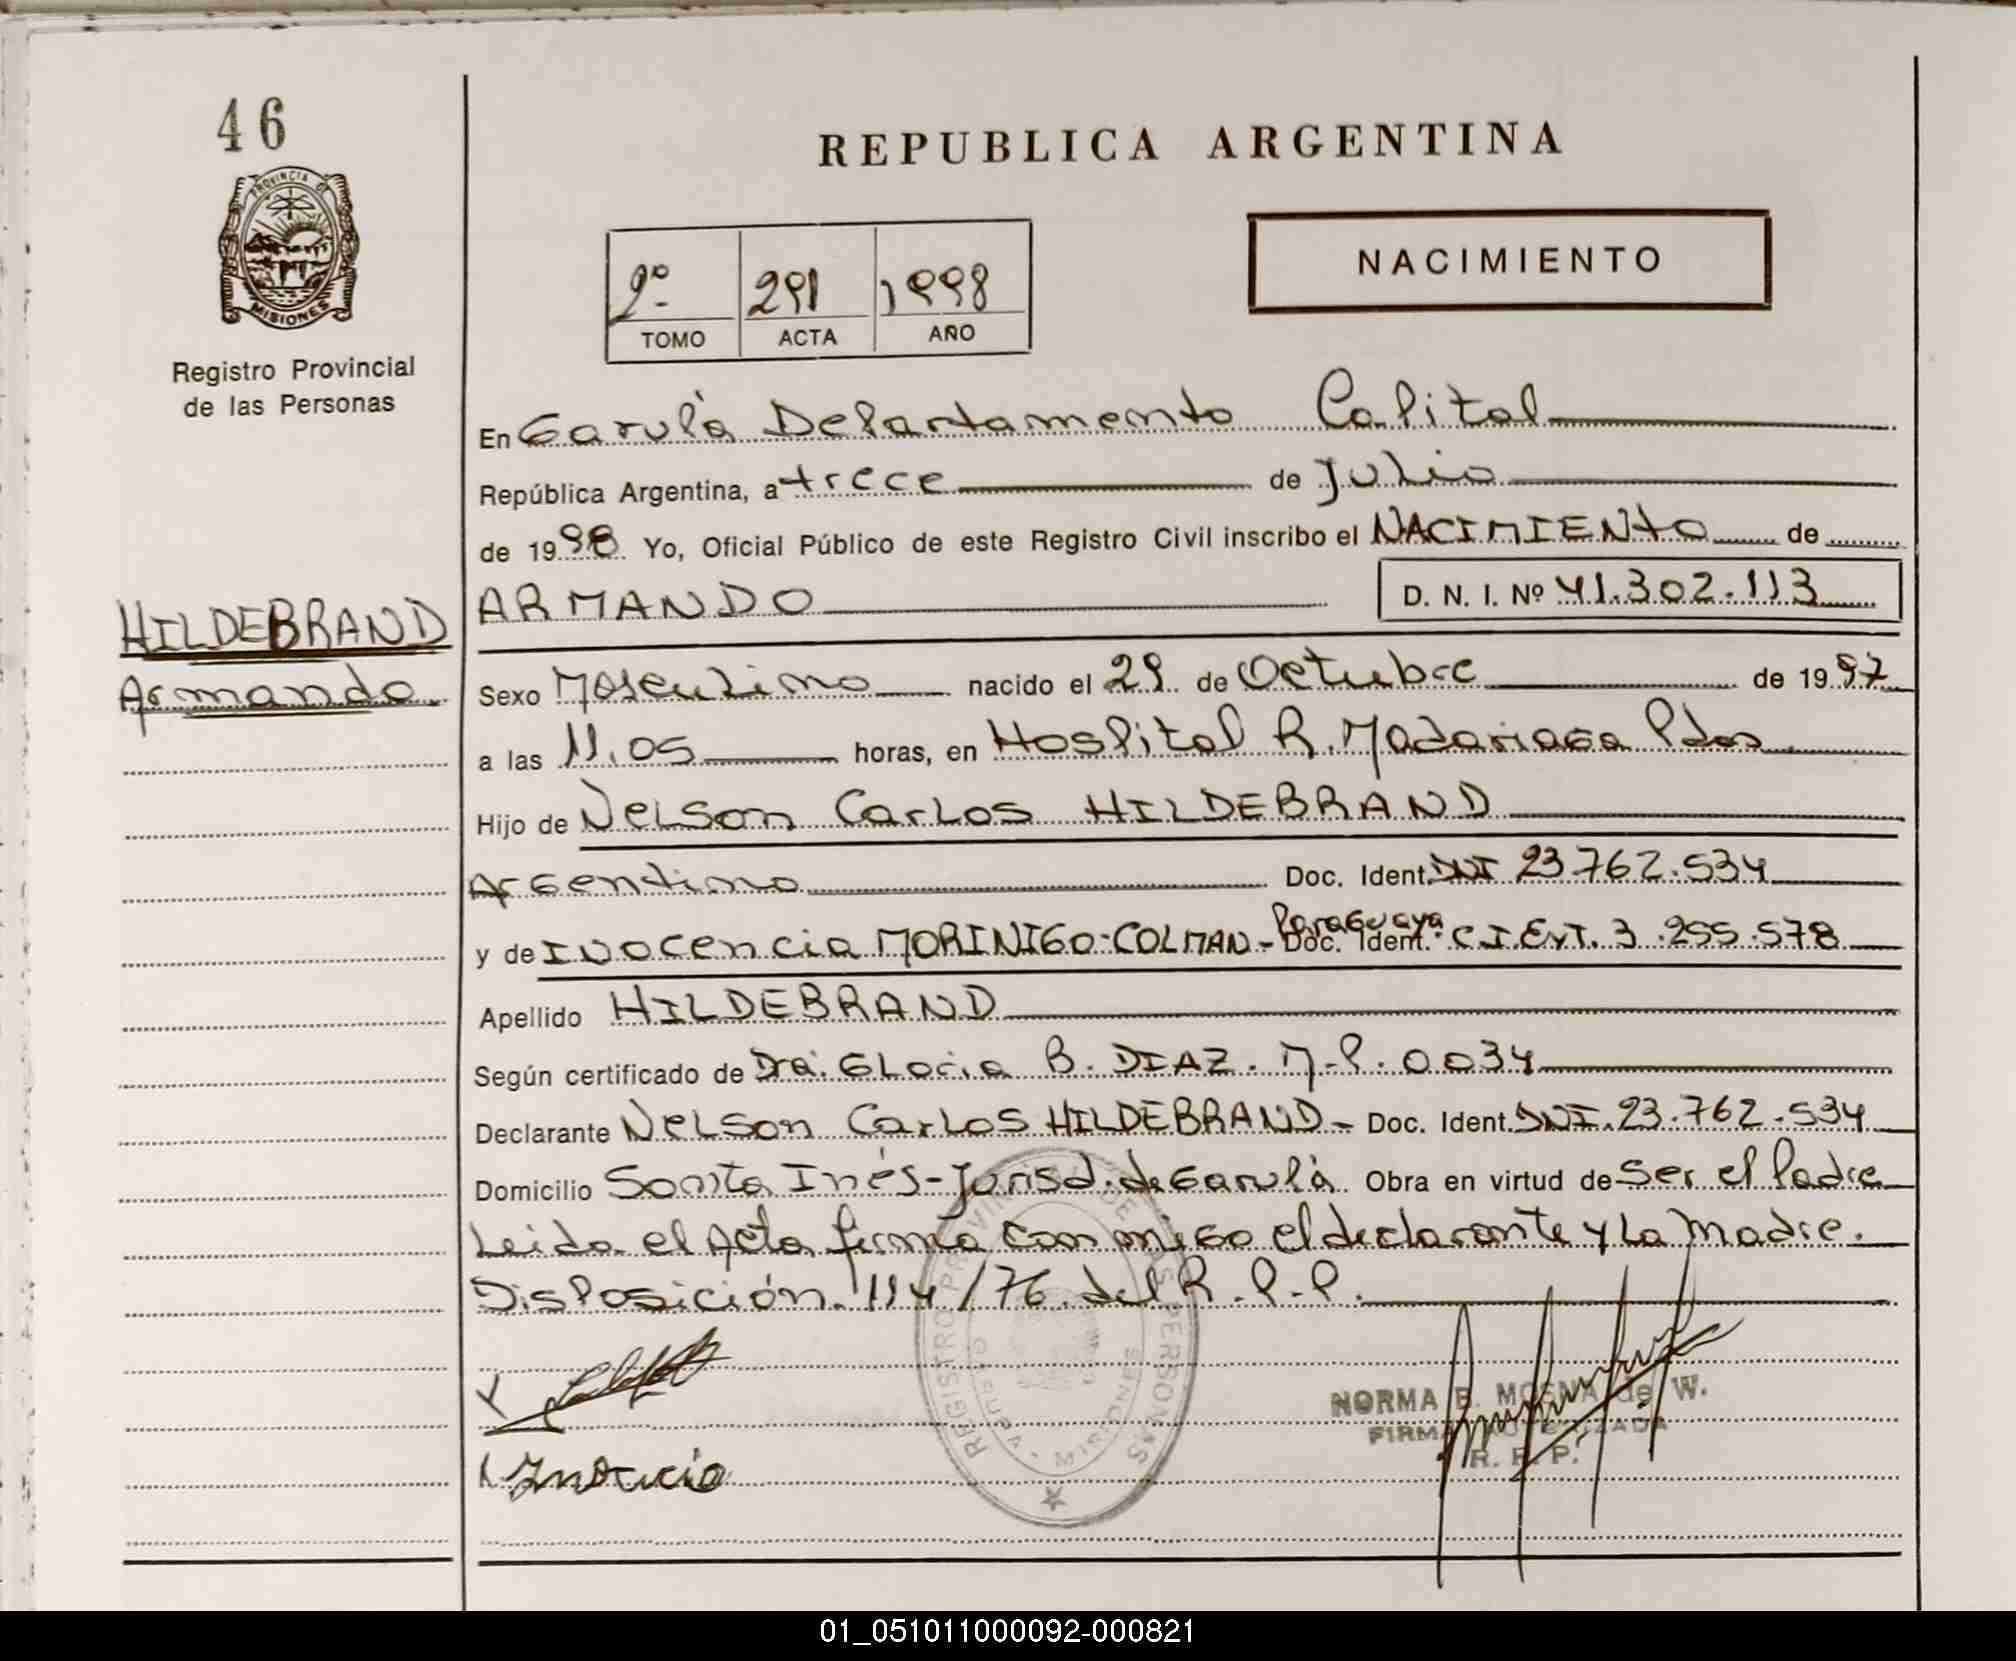 46
REPUBLICA ARGENTINA
PROVINCIA DE
MISIONES
Registro Provincial
de las Personas
2º 291 1998
TOMO ACTA AÑO
NACIMIENTO
En Garupá Departamento Capital
República Argentina, a trece de Julio
de 1998 Yo, Oficial Público de este Registro Civil inscribo el NACIMIENTO de
HILDEBRAND
Armando
ARMANDO D. N. I. Nº 41.302.113
Sexo Masculino nacido el 29 de Octubre de 1997
a las 11.05 horas, en Hospital R. Madariaga Pdas
Hijo de Nelson Carlos HILDEBRAND
Argentino Doc. Ident. DNI 23.762.534
y de INOCENCIA MORINIGO-COLMAN- Paraguaya Doc. Ident. C.I.Ext. 3.255.578
Apellido HILDEBRAND
Según certificado de Dra. Gloria B. DIAZ. M.P. 0034
Declarante Nelson Carlos HILDEBRAND - Doc. Ident. DNI. 23.762.534
Domicilio Santa Inés-Jurisd. de Garupá Obra en virtud de Ser el Padre
Leida el Acta firma con migo el declarante y La Madre.
Disposición 114/76 del R.P.P.
REGISTRO PROVINCIAL DE LAS PERSONAS
GARUPA - MISIONES
NORMA B. MOSNA de W.
FIRMA AUTORIZADA
R. P. P.
01_051011000092-000821